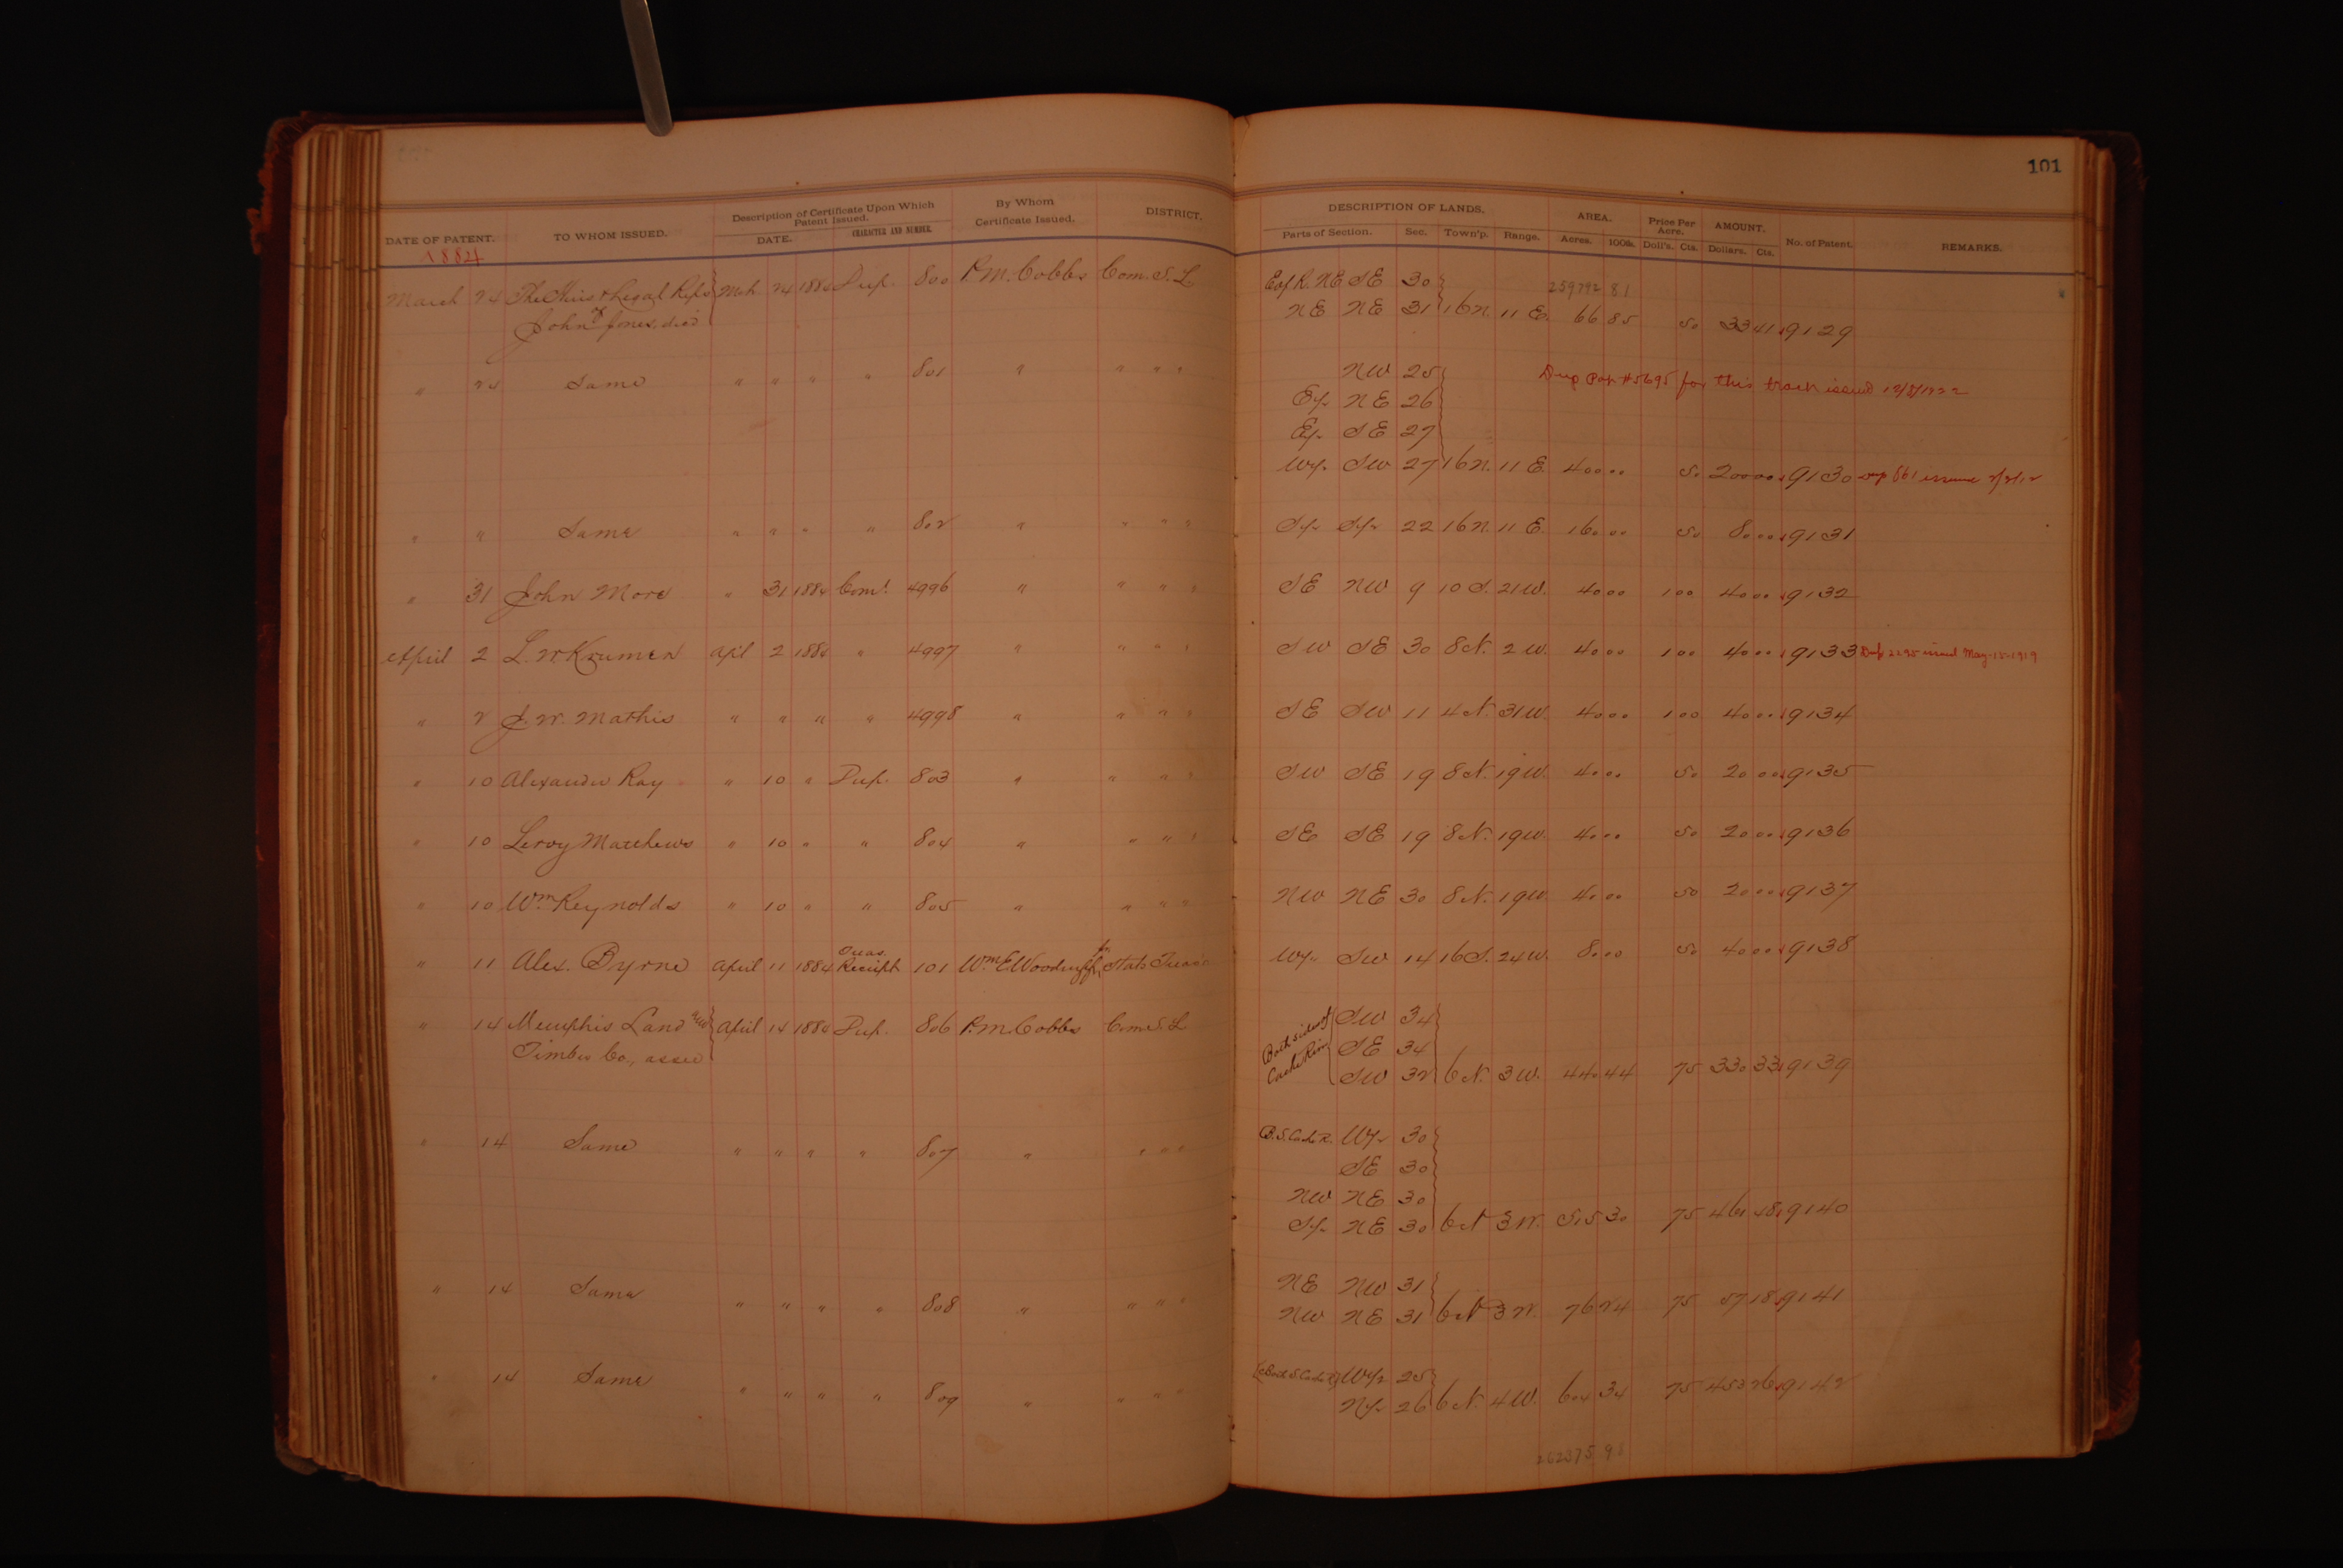 101
DATE OF PATENT. TO WHOM ISSUED. Description of Certificate Upon Which Patent Issued. DATE. CHARACTER AND NUMBER. By Whom Certificate Issued. DISTRICT. DESCRIPTION OF LANDS. Parts of Section. Sec. Town'p. Range. AREA. Acres. 100th. Price Per Acre. Doll's. Cts. AMOUNT. Dollars. Cts. No. of Patent. REMARKS.
1884
259792 81
March 24 The Heirs & Legal Reps Mch 24 1884 Dup. 800 P.M. Cobbs Com. S. L E of R. NE SE 30
of John Jones, dec'd NE NE 31 16 N. 11 E. 66 85 50 33 41 9129
" 24 Same " " " " 801 " " " " NW 25 Dup Pat #5695 for this tract issued
E½ NE 26
E½ SE 27
W½ SW 27 16 N. 11 E. 400 00 50 200 00 9130 Dup 861 issued
" " Same " " " " 802 " " " " S½ S½ 22 16 N. 11 E. 160 00 50 80 00 9131
" 31 John More " 31 1884 Com'. 4996 " " " " SE NW 9 10 S. 21 W. 40 00 1 00 40 00 9132
April 2 L. W Krumen Apil 2 1884 " 4997 " " " " SW SE 30 8 N. 2 W. 40 00 1 00 40 00 9133 Dup 2295 issued May-15-1919
" 2 J. W. Mathis " " " " 4998 " " " " SE SW 11 4 N. 31 W. 40 00 1 00 40 00 9134
" 10 Alexander Ray " 10 " Dup. 803 " " " " SW SE 19 8 N. 19 W. 40 00 50 20 00 9135
" 10 Leroy Matthews " 10 " " 804 " " " " SE SE 19 8 N. 19 W. 40 00 50 20 00 9136
" 10 Wm Reynolds " 10 " " 805 " " " " NW NE 30 8 N. 19 W. 40 00 50 20 00 9137
" 11 Alex. Byrne April 11 1884 Treas. Receipt 101 Wm E. Woodruff, jr. State Treas'r W½ SW 14 16 S. 24 W. 80 00 50 40 00 9138
" 14 Memphis Land and April 14 1884 Dup. 806 P.M. Cobbs Com S. L Both sides of Cache River SW 34
Timber Co., assee SE 34
SW 32 6 N. 3 W. 440 44 75 330 33 9139
" 14 Same " " " " 807 " " " " B.S. Cache R. W½ 30
SE 30
NW NE 30
S½ NE 30 6 N 3 W. 615 30 75 461 48 9140
" 14 Same " " " " 808 " " " " NE NW 31
NW NE 31 6 N 3 W. 76 24 75 57 18 9141
" 14 Same " " " " 809 " " " " (Both S. Cache R) W½ 25
N½ 26 6 N. 4 W. 604 34 75 453 26 9142
262375 96